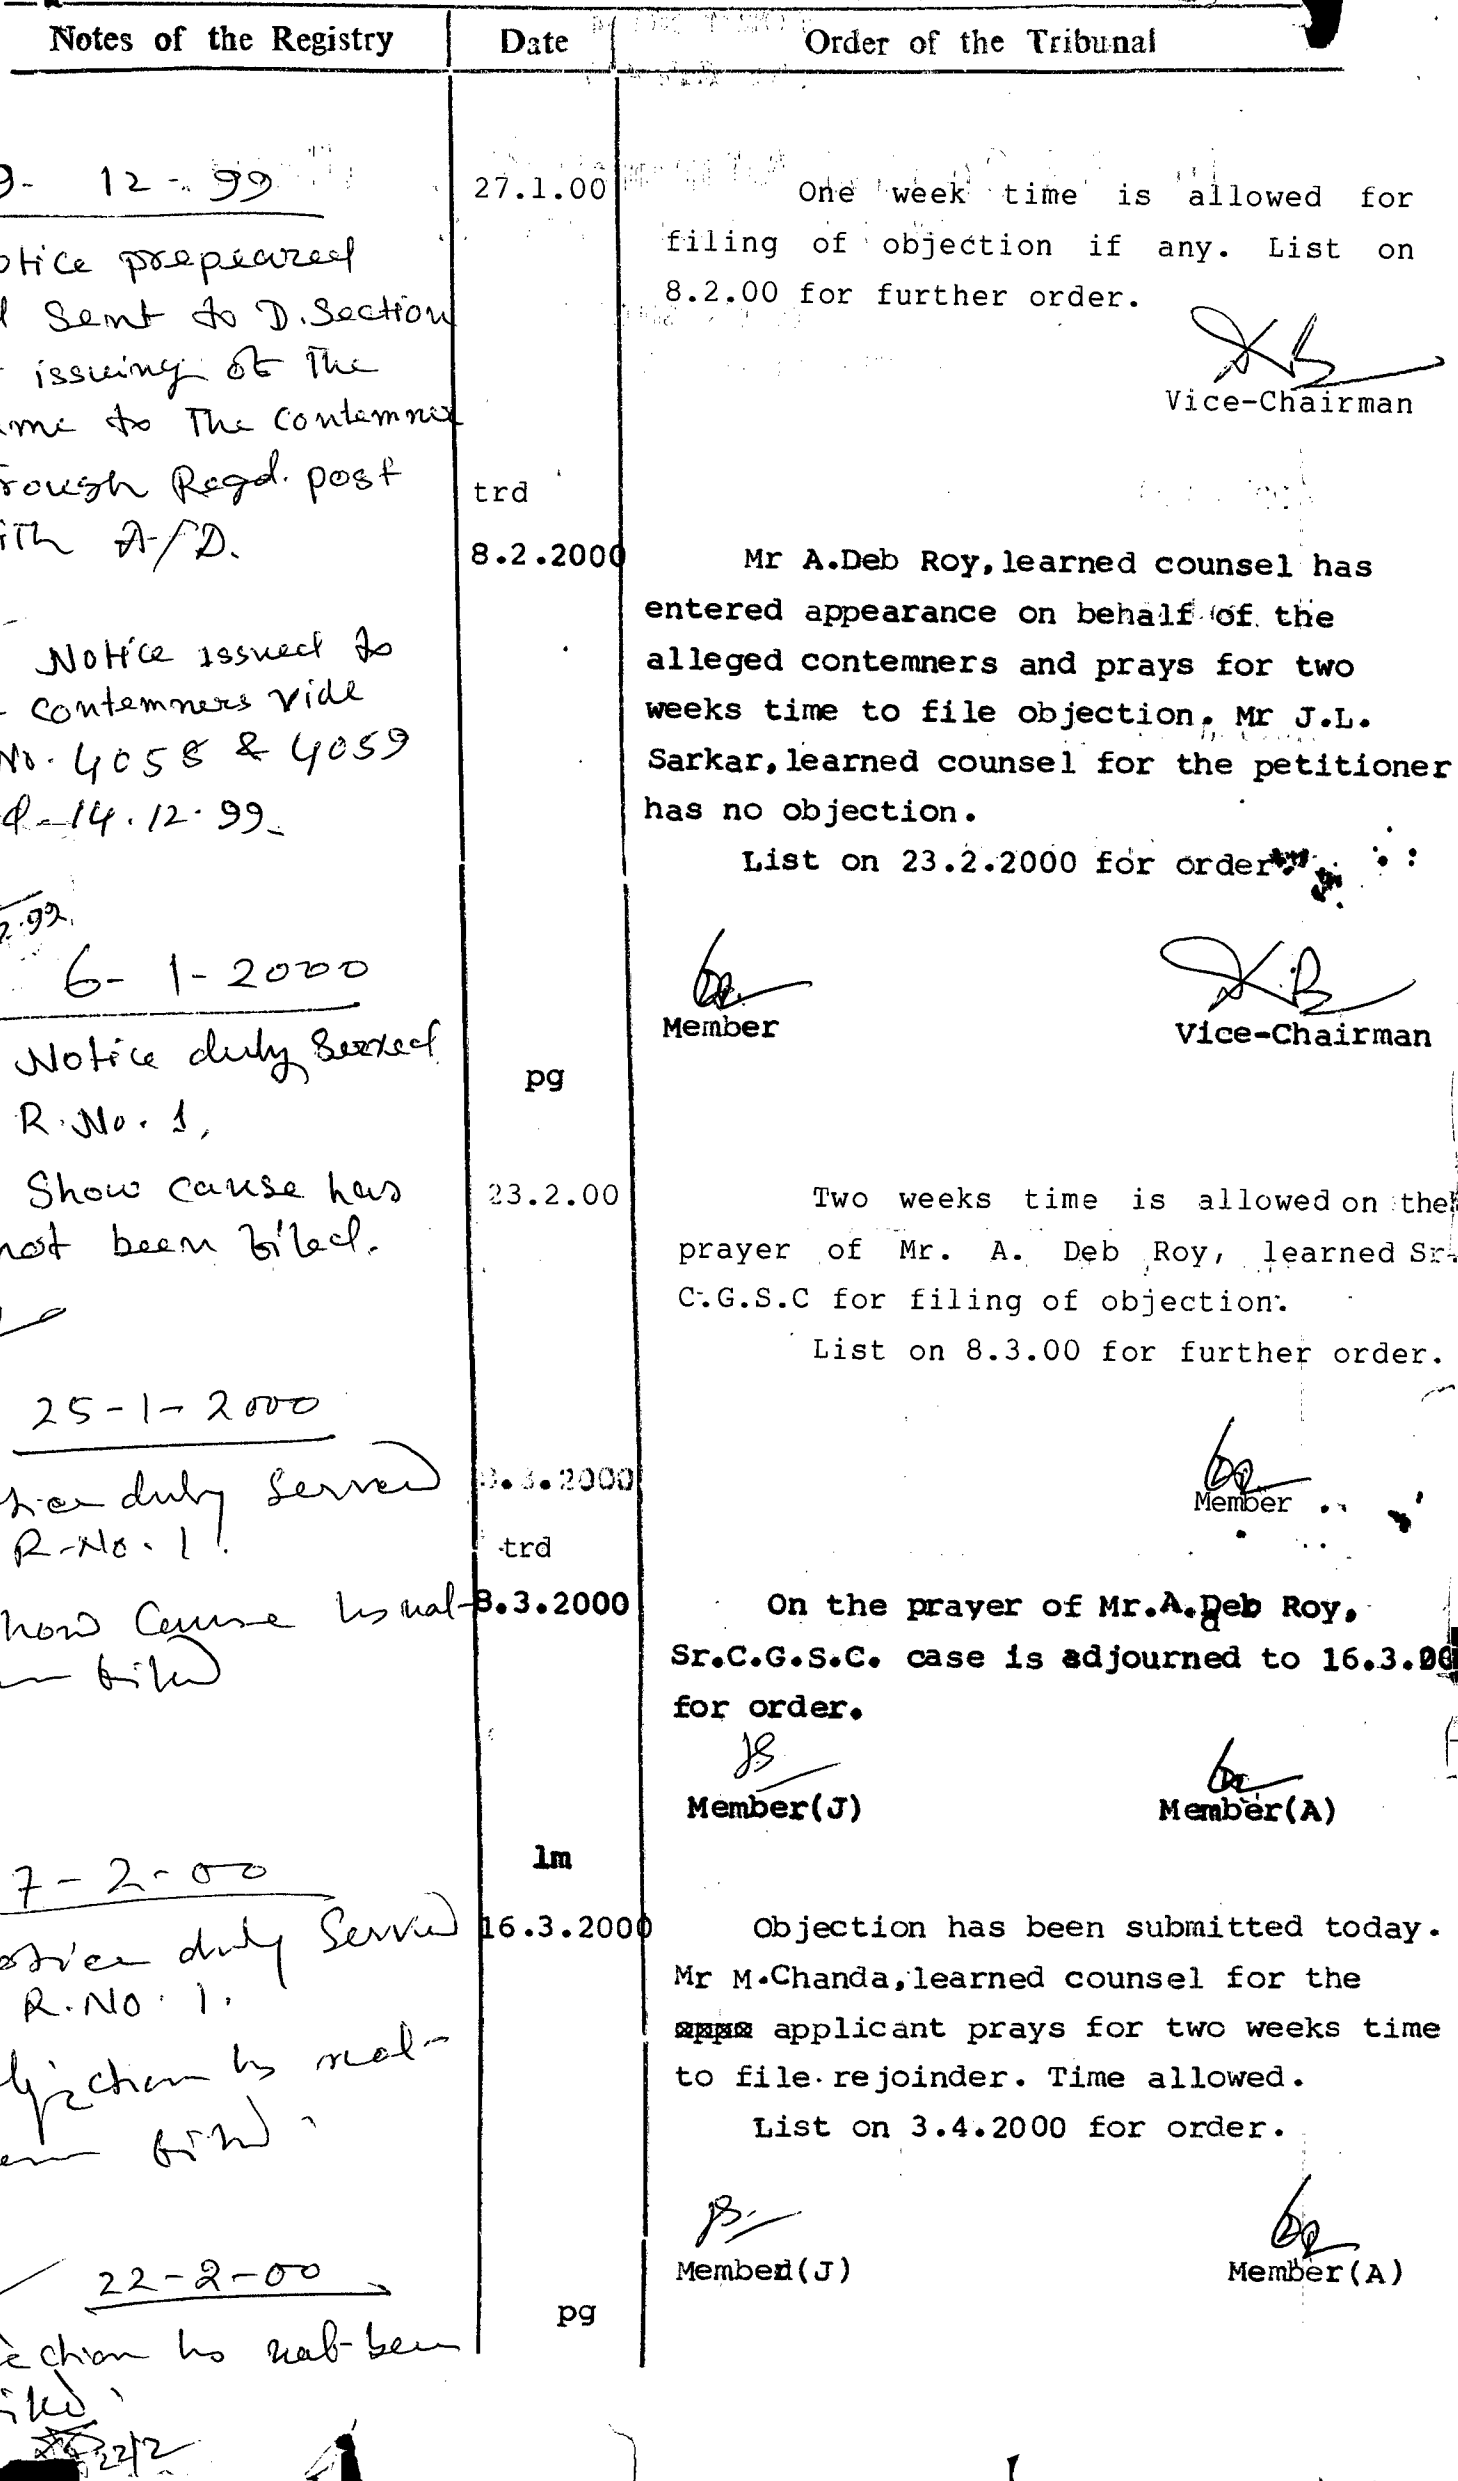 Notes of the Registry
Date
Order of the Tribunal
12-99
prepeared
Sent to D.Section
issuing of The
to The Contemner
Regd. post
A/D.
Notice issued to
contemners vide
No. 4058 & 4059
14.12.99
6-1-2000
Notice duly Served
R.No.1,
Show cause has
not been filed.
25-1-2000
duly Served
R-No.1.
Cause has not
filed
7-2-00
duly Served
R.No.1.
has not
filed.
22-2-00
has not been
22/2
27.1.00
One week time is allowed for
filing of objection if any. List on
8.2.00 for further order.
Vice-Chairman
trd
8.2.2000
Mr A.Deb Roy, learned counsel has
entered appearance on behalf of the
alleged contemners and prays for two
weeks time to file objection. Mr J.L.
Sarkar, learned counsel for the petitioner
has no objection.
List on 23.2.2000 for order
Member
Vice-Chairman
pg
23.2.00
Two weeks time is allowed on the
prayer of Mr. A. Deb Roy, learned Sr.
C.G.S.C for filing of objection.
List on 8.3.00 for further order.
Member
trd
8.3.2000
On the prayer of Mr.A.Deb Roy,
Sr.C.G.S.C. case is adjourned to 16.3.00
for order.
Member(J)
Member(A)
lm
16.3.2000
Objection has been submitted today.
Mr M.Chanda, learned counsel for the
applicant prays for two weeks time
to file rejoinder. Time allowed.
List on 3.4.2000 for order.
Member(J)
Member(A)
pg